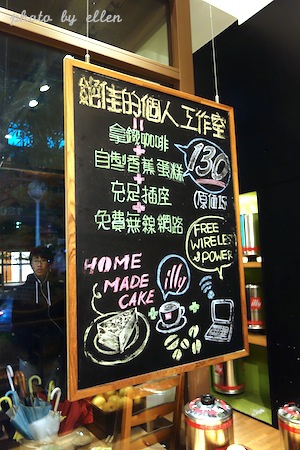 photo by ellen
絕佳的個人工作室
拿鐵咖啡
+
自製香蕉蛋糕
130
+
充足插座
+
免費無線網路
FREE
WIRELESS
& POWER
HOME
MADE
CAKE
illy
+
+
illy